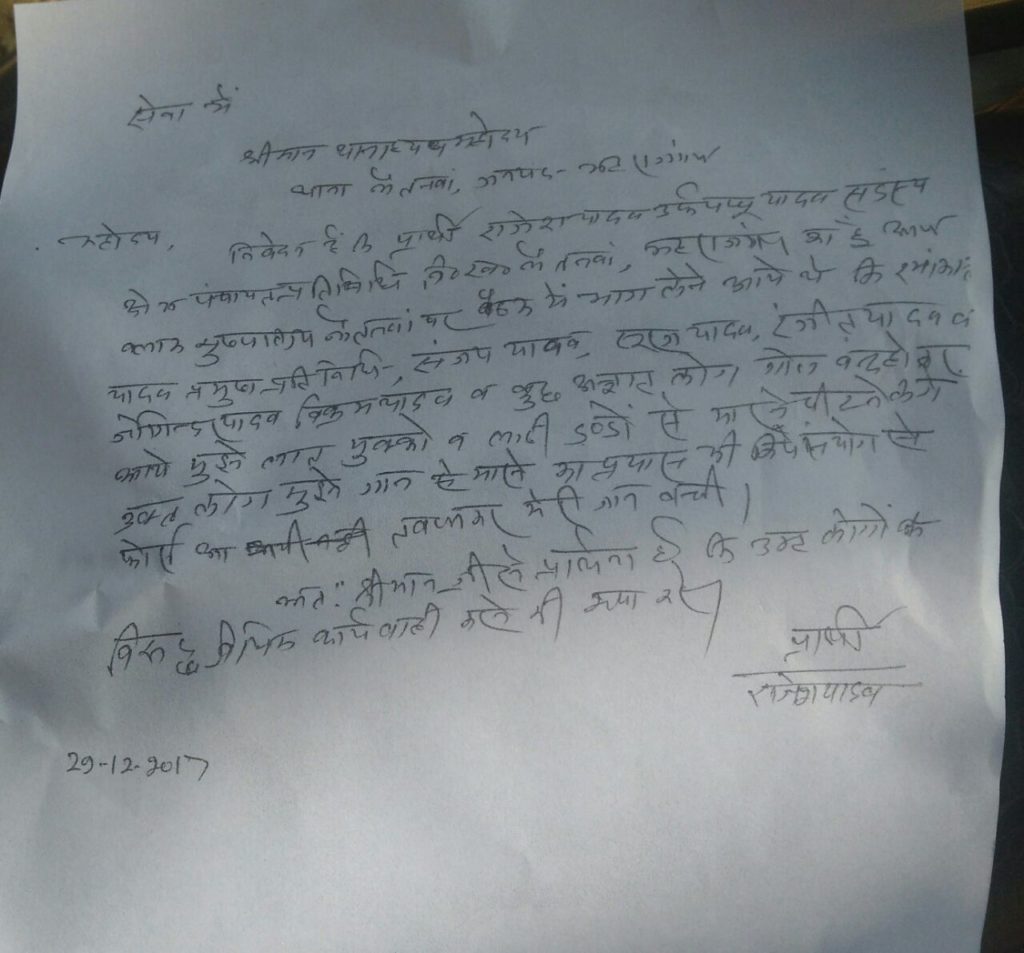 सेवा में
श्रीमान थानाध्यक्ष महोदय
थाना नौतनवां, जनपद- महराजगंज
महोदय,
निवेदन है कि प्रार्थी राजेश यादव उर्फ पप्पू यादव सदस्य
क्षेत्र पंचायत प्रतिनिधि नौतनवां, महराजगंज का है आज
ब्लाक मुख्यालय नौतनवां पर बैठक में भाग लेने आये थे कि
यादव प्रमुख प्रतिनिधि, संजय यादव, यादव, रंजीत यादव व
जोगिन्दर यादव विक्रम यादव व कुछ अज्ञात लोग गोल बन्द होकर
आये मुझे लात मुक्को व लाठी डण्डों से मारने पीटने लगे
उक्त लोग मुझे जान से मारने का प्रयास भी किये संयोग से
फोर्स आ तब जाकर मेरी जान बची।
अतः श्रीमान जी से प्रार्थना है कि उक्त लोगों के
विरूद्ध विधिक कार्यवाही करने की कृपा करें।
प्रार्थी
राजेश यादव
29-12-2017